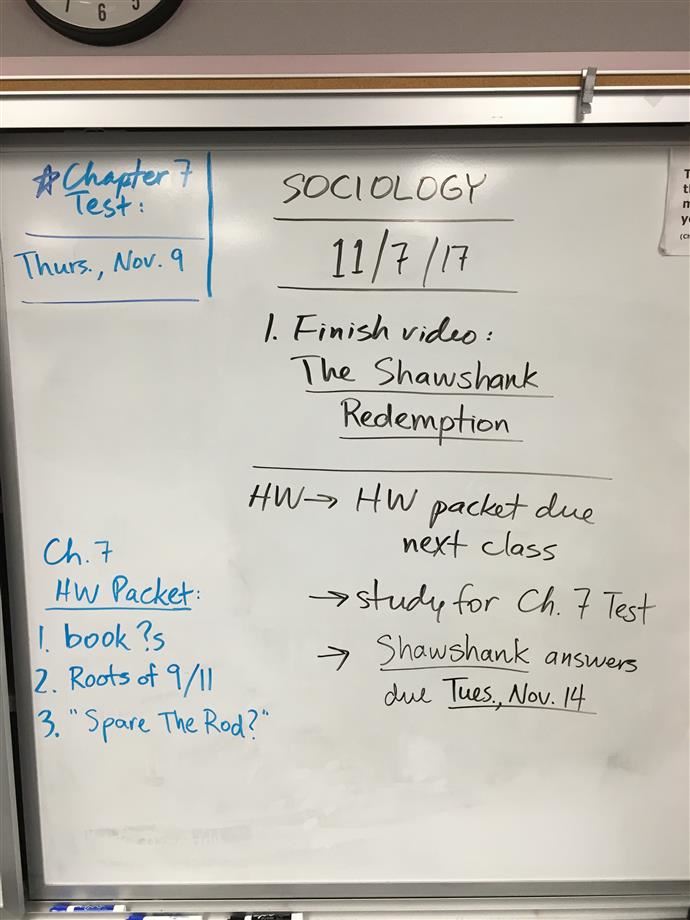 6
5
☆Chapter 7
Test:
Thurs., Nov. 9
SOCIOLOGY
11/7/17
1. Finish video:
The Shawshank
Redemption
HW→ HW packet due
next class
→ study for Ch. 7 Test
→ Shawshank answers
due Tues., Nov. 14
Ch. 7
HW Packet:
1. book ?s
2. Roots of 9/11
3. "Spare The Rod?"